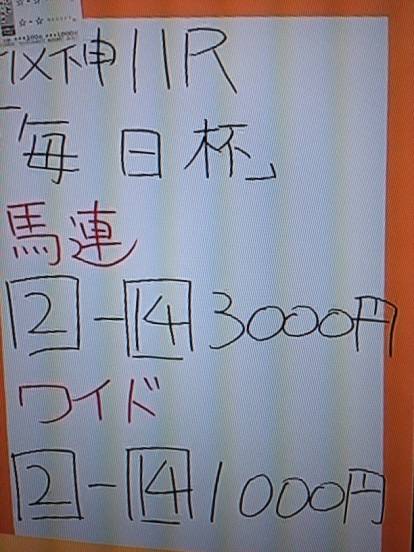 阪神11R
「毎日杯」
馬連
2-14 3000円
ワイド
2-14 1000円